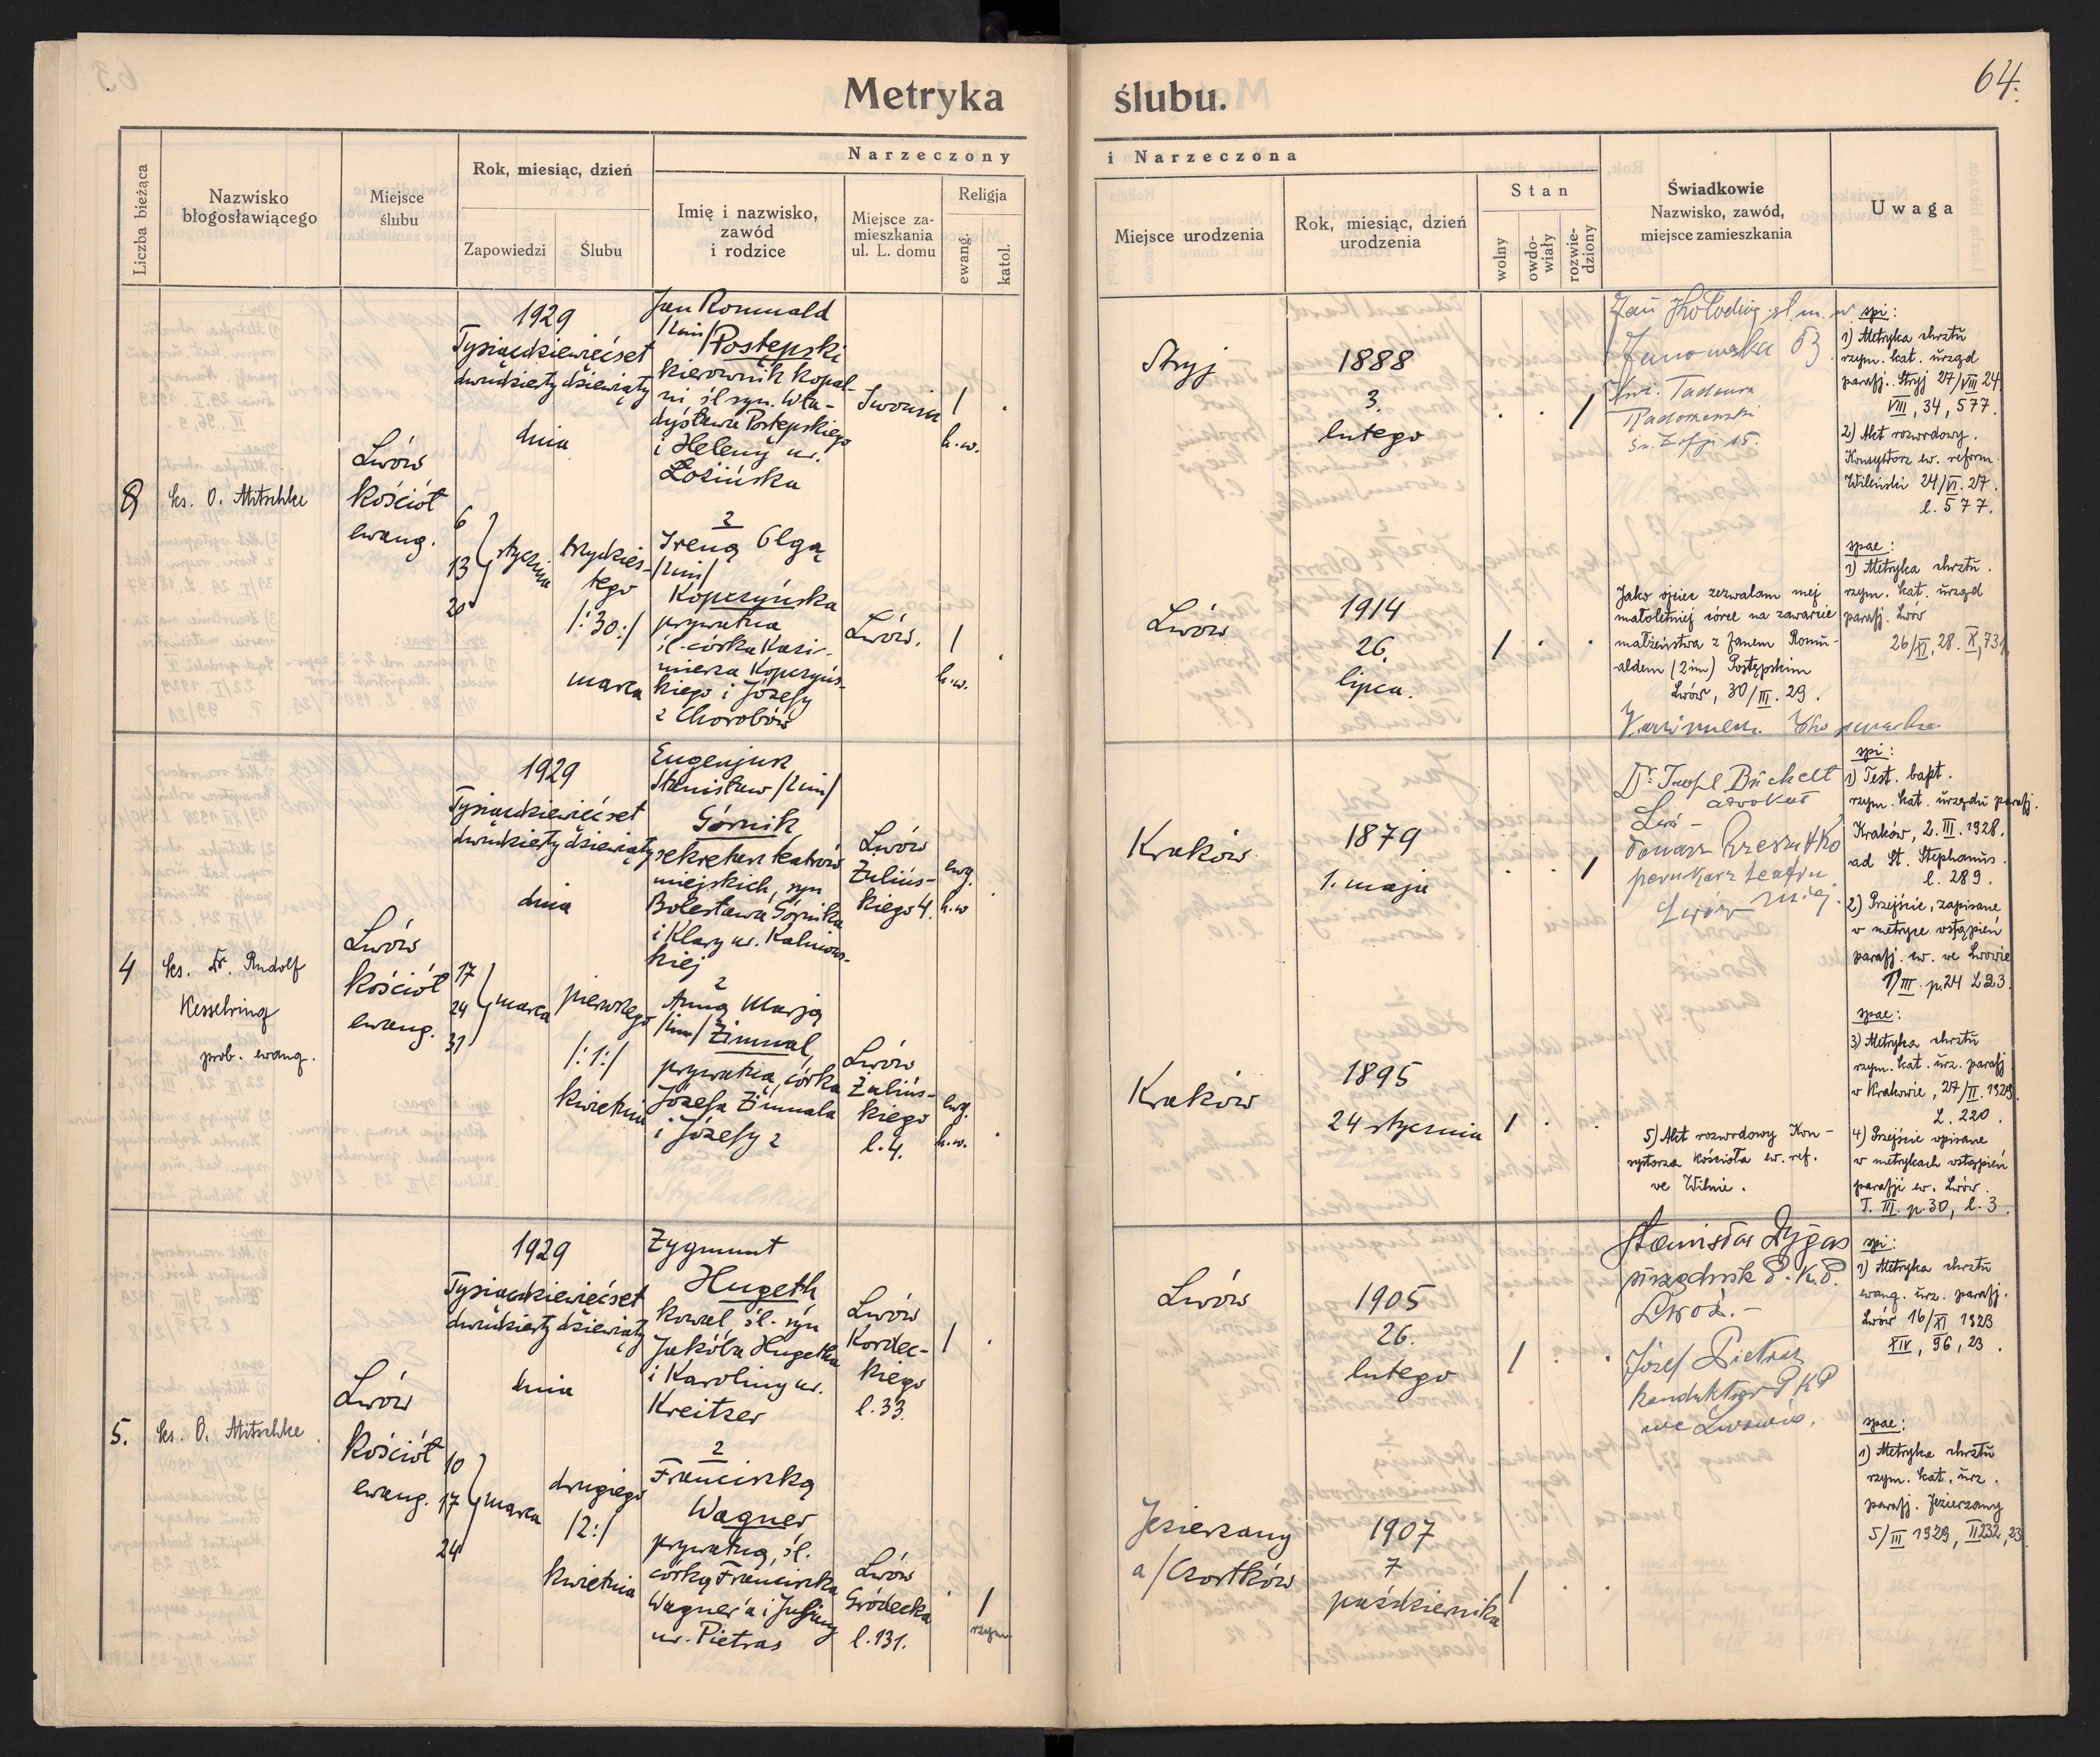 64.
Metryka ślubu.
Liczba bieżąca
Nazwisko
błogosławiącego
Miejsce
ślubu
Rok, miesiąc, dzień
Zapowiedzi
Ślubu
Narzeczony
Imię i nazwisko,
zawód
i rodzice
Miejsce za-
mieszkania
ul. L. domu
Religja
ewang.
katol.
i Narzeczona
Miejsce urodzenia
Rok, miesiąc, dzień
urodzenia
Stan
wolny
owdo-
wiały
rozwie-
dziony
Świadkowie
Nazwisko, zawód,
miejsce zamieszkania
Uwaga
ks. O. Mitschke
Lwów
Kościół
ewang.
1929
Tysiącdziewięćset
dwudziesty dziewiąty
dnia
6
13
20
stycznia
trzydzies-
tego
/:30:/
marca
Jan Romuald
/2im/ Postępski
kierownik kopal-
ni śl. syn. Wła-
dysława Postępskiego
i Heleny ur.
Łozińska
z
Ireną Olgą
/2im/
Kopczyńska
prywatna
śl. córka Kazi-
mierza Kopczyńs-
kiego i Józefy
z Chorobów
h.w.
Lwów.
h.w.
Stryj
1888
3.
lutego
Lwów
1914
26.
lipca.
Janowska
Jako ojciec zezwalam mej
małoletniej córce na zawarcie
małżeństwa z Janem Romu-
aldem (2im) Postępskim
Lwów, 30/III. 29.
spi:
1) Metryka chrztu
rzym. kat. urząd
parafj. Stryj 27/VIII 24
VIII, 34, 577.
2) Akt rozwodowy.
Konsystorz ew. reform.
Wileński 24/VI. 27.
l. 577.
spae:
1) Metryka chrztu.
rzym. kat. urząd
parafj. Lwów
26/XI. 28. X, 731
4
ks. Dr. Rudolf
Kesselring
prob. ewang.
Lwów
Kościół
ewang.
1929
Tysiącdziewięćset
dwudziesty dziewiąty
dnia
17
24
31
marca
pierwszego
/:1:/
kwietnia
Eugenjusz
Stanisław /2im/
Górnik,
sekretarz teatrów
miejskich, syn
Bolesława Górnika
i Klary ur. Kalinows-
kiej
z
Anną Marją
/2im/ Zimmal,
prywatna, córka
Józefa Zimmala
i Józefy z
Lwów
Zulińs-
kiego 4.
ewg.
h.w
Lwów
Zulińs-
kiego
l. 4.
ewg.
h.w.
Kraków
1879
1. maja
Kraków
1895
24 stycznia
adwokat
perukarz teatru
5) Akt rozwodowy Kon-
systorza Kościoła ew. ref.
we Wilnie.
spi:
1) Test. bapt.
rzym. kat. urzędu parafj.
Kraków, 2. III. 1928.
ad St. Stephanus.
l. 289.
2) Przejście, zapisane
w metryce wstąpień
parafj. ew. we Lwowie
spae:
3) Metryka chrztu
rzym. kat. urz. parafj
w Krakowie, 27/II. 1929.
L. 220.
4) Przejście wpisane
w metrykach wstąpień
parafji ew. Lwów.
T. III. p. 30, l. 3.
5.
ks. O. Mitschke.
Lwów
Kościół
ewang.
1929
Tysiącdziewięćset
dwudziesty dziewiąty
dnia
10
17
24
marca
drugiego
/2:/
kwietnia
Zygmunt
Hugeth
kowal śl. syn
Jakóba Hugetha
i Karoliny ur.
Kreitzer
z
Franciszką
Wagner
prywatną, śl.
córką Franciszka
Wagner'a i Juljany
ur. Pietras
Lwów
Kordec-
kiego
l. 33.
Lwów
Gródecka
l. 131.
rzym.
Lwów
1905
26.
lutego
Jezierzany
a/Czortków
1907
7
października
Stanisław Dygas
urzędnik P. K. P.
Lwów.-
Józef Pietras
konduktor P K P
we Lwowie.
spi:
1) Metryka chrztu
ewang. urz. parafj.
Lwów 16/XI 1923
XIV, 96, 23.
spae:
1) Metryka chrztu
rzym. kat. urz.
parafj. Jezierzany
5/III 1929, II 232, 23